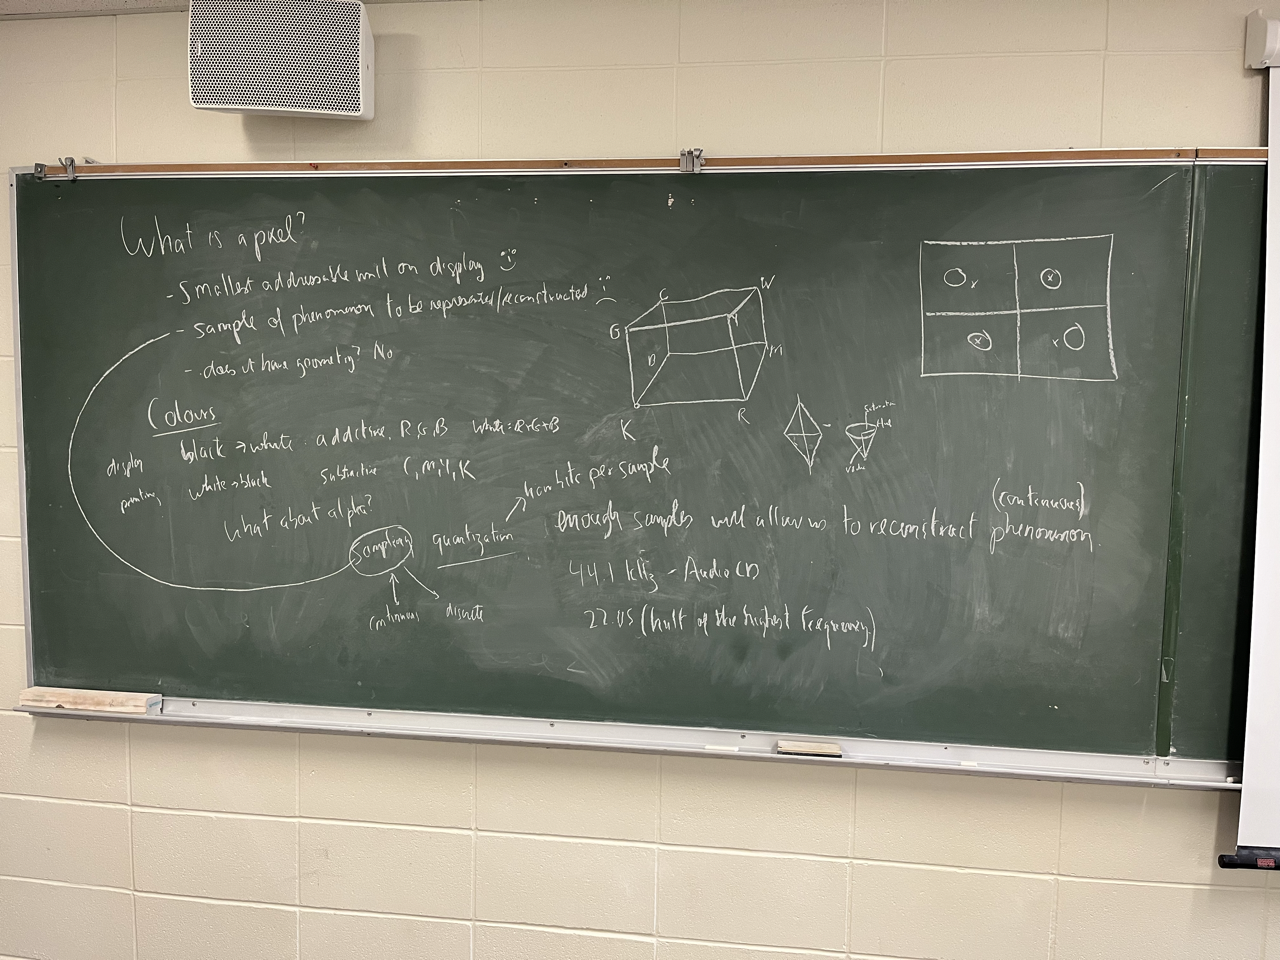 What is a pixel?
- smallest addressable unit on display
- sample of phenomenon to be represented/reconstructed
- does it have geometry? No
Colours
display black → white additive R, G, B White = R+G+B
printing white → black subtractive C, M, Y, K
What about alpha?
sampling quantization
continuous discrete
bits per sample
C W
G Y
B M
K R
saturation
Hue
value
enough samples will allow us to reconstruct (continuous) phenomenon.
44.1 kHz - Audio CD
22.05 (half of the highest frequency)